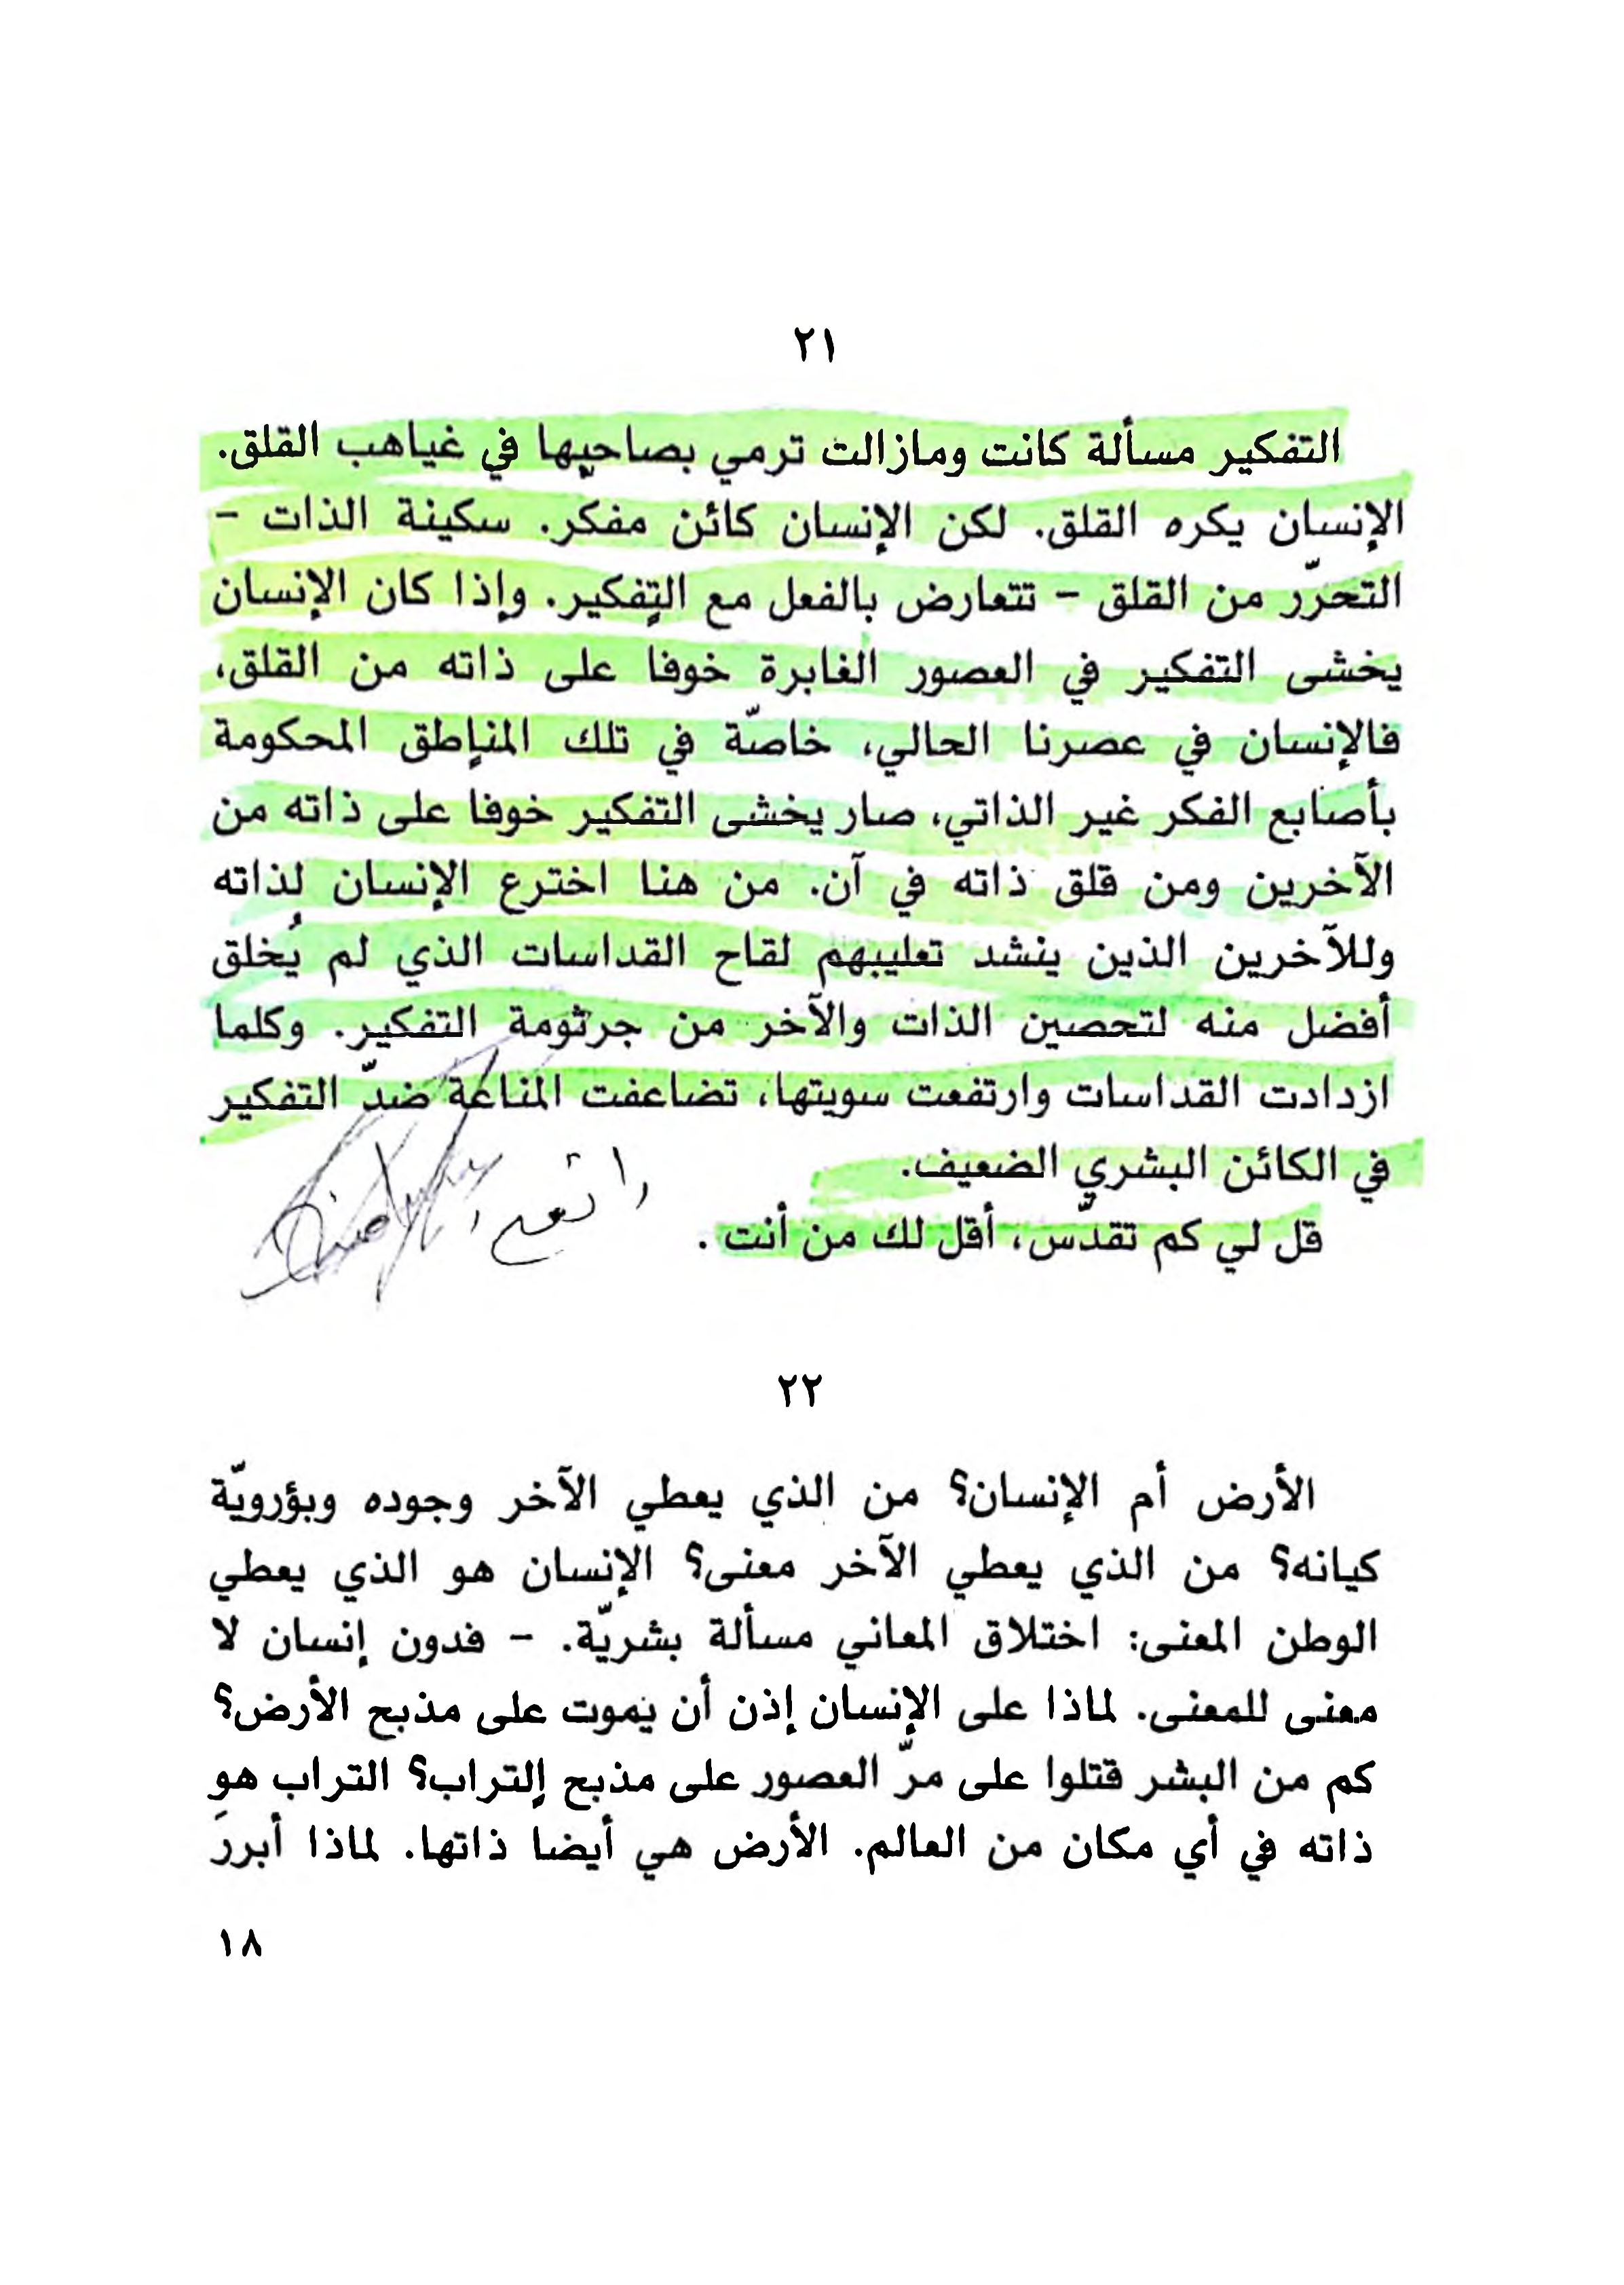 ٢١
التفكير مسألة كانت ومازالت ترمي بصاحبها في غياهب القلق.
الإنسان يكره القلق. لكن الإنسان كائن مفكر. سكينة الذات -
التحرّر من القلق - تتعارض بالفعل مع التفكير. وإذا كان الإنسان
يخشى التفكير في العصور الغابرة خوفا على ذاته من القلق،
فالإنسان في عصرنا الحالي، خاصّة في تلك المناطق المحكومة
بأصابع الفكر غير الذاتي، صار يخشى التفكير خوفا على ذاته من
الآخرين ومن قلق ذاته في آن. من هنا اخترع الإنسان لذاته
وللآخرين الذين ينشد تعليبهم لقاح القداسات الذي لم يُخلق
أفضل منه لتحصين الذات والآخر من جرثومة التفكير. وكلما
ازدادت القداسات وارتفعت سويتها، تضاعفت المناعة ضدّ التفكير
في الكائن البشري الضعيف.
قل لي كم تقدّس، أقل لك من أنت .
٢٢
الأرض أم الإنسان؟ من الذي يعطي الآخر وجوده وبؤرويّة
كيانه؟ من الذي يعطي الآخر معنى؟ الإنسان هو الذي يعطي
الوطن المعنى: اختلاق المعاني مسألة بشريّة. - فدون إنسان لا
معنى للمعنى. لماذا على الإنسان إذن أن يموت على مذبح الأرض؟
كم من البشر قتلوا على مرّ العصور على مذبح التراب؟ التراب هو
ذاته في أي مكان من العالم. الأرض هي أيضا ذاتها. لماذا أبررَ
١٨